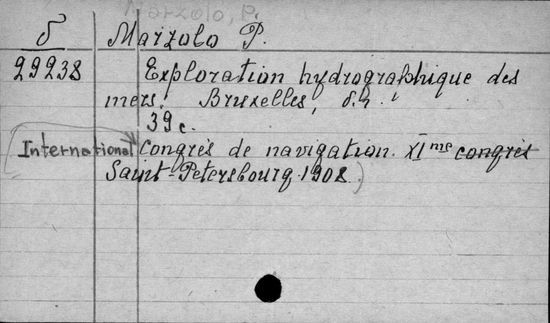 Marzolo, P.
δ Marzolo P.
29238 Exploration hydrographique des
mers. Bruxelles, d.г.
39 c.
International congrès de navigation. XI me congrès
Saint-Petersbourg 1908.)